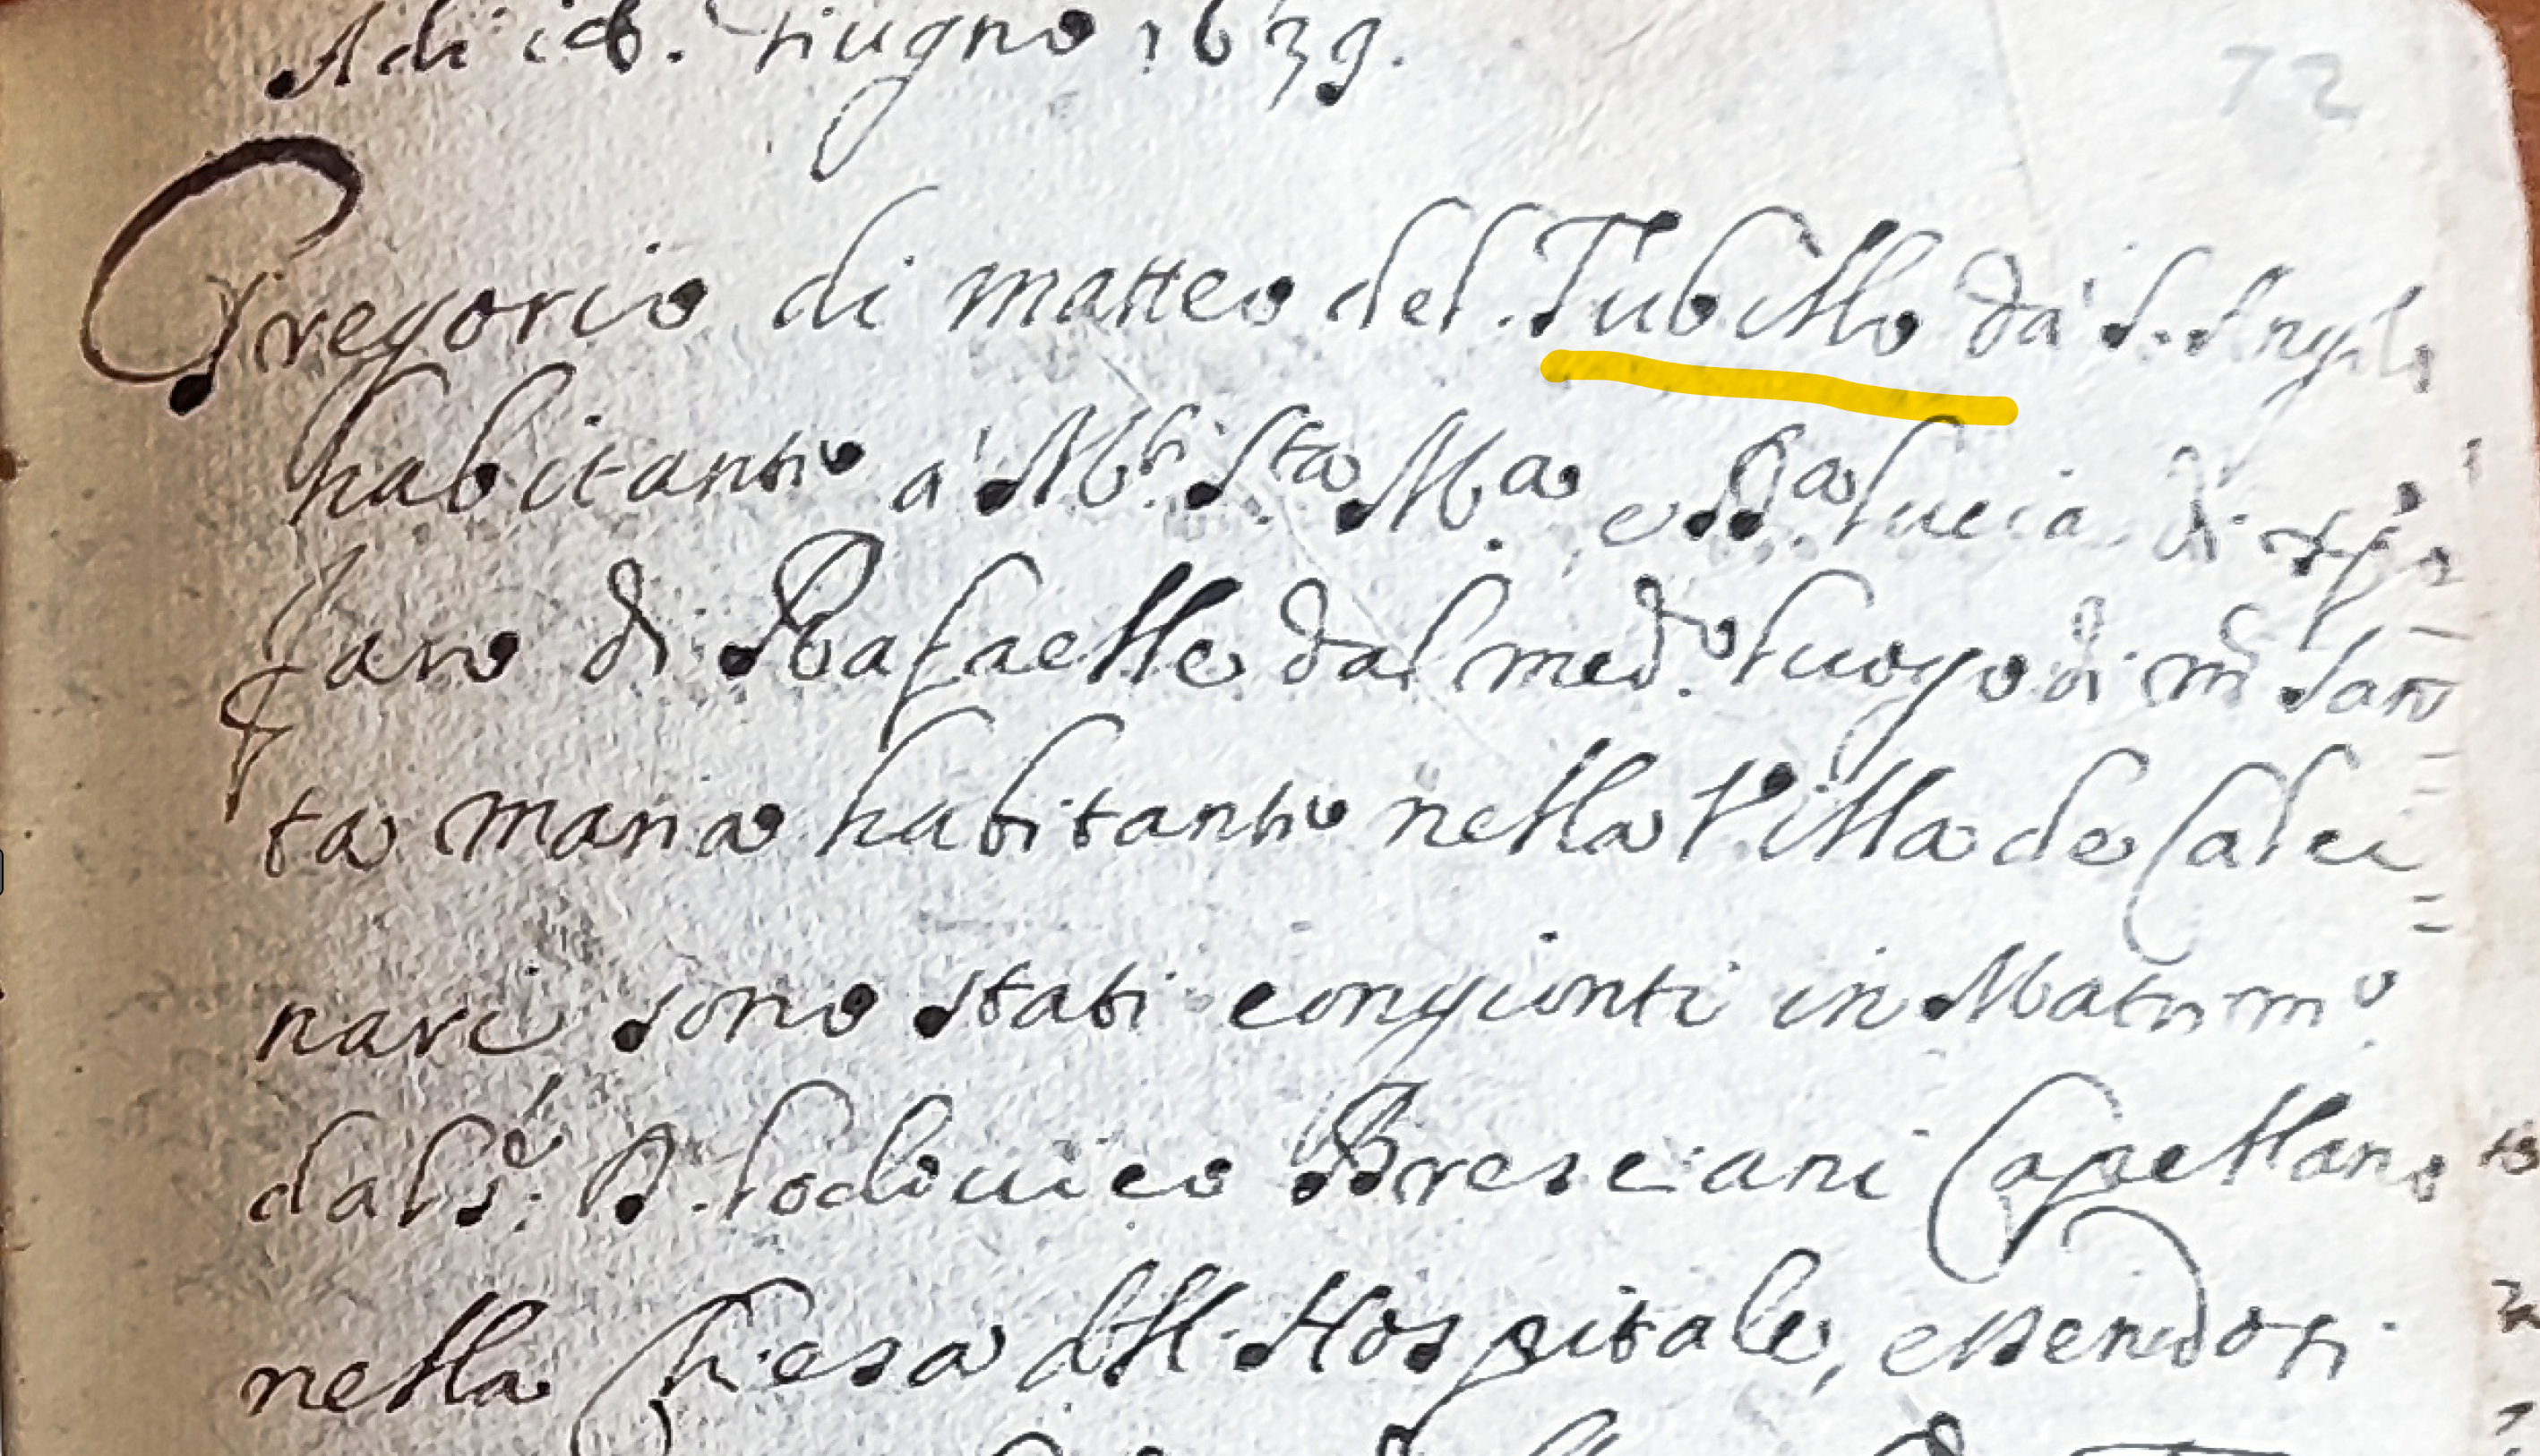 Adi 16. Giugno 1639.
72
Gregorio di matteo del Tubillo da S. Angelo
habitantio a M.ti S.ta M.a e D.a lucia di
faro di Rafaelle dal med.o luogo di m. San
ta maria habitantio nella Villa de Calci
nari sono stati congionti in Matrim.o
dal S.e D. lodouico Bresciani Capellano
nella Chiesa dell Hospitale, essendosi